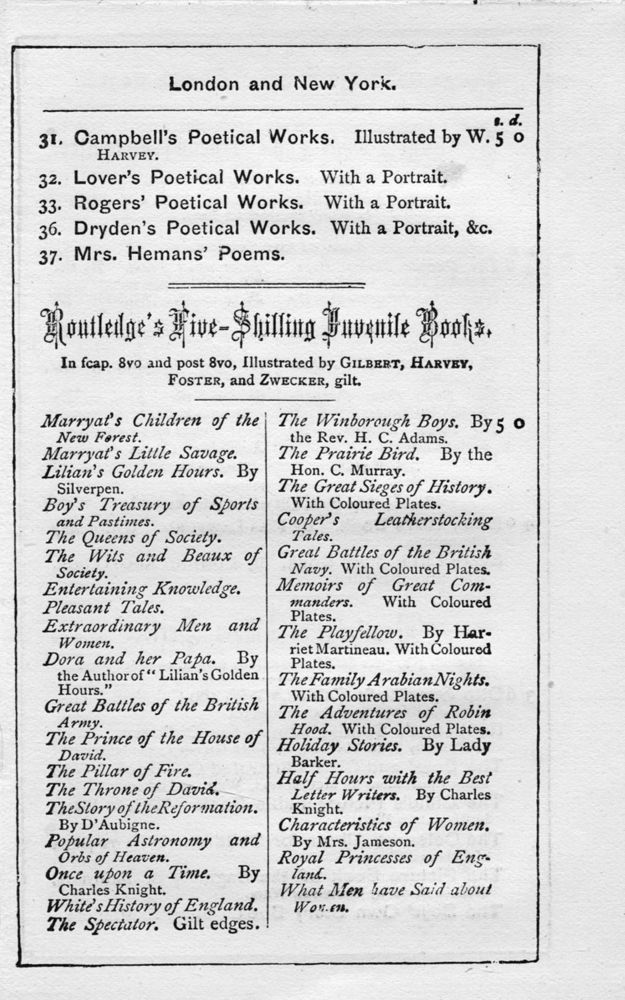 London and New York.
s. d.
31. Campbell's Poetical Works. Illustrated by W. 5 0
HARVEY.
32. Lover's Poetical Works. With a Portrait.
33. Rogers' Poetical Works. With a Portrait.
36. Dryden's Poetical Works. With a Portrait, &c.
37. Mrs. Hemans' Poems.
Routledge's Five-Shilling Juvenile Books.
In fcap. 8vo and post 8vo, Illustrated by GILBERT, HARVEY,
FOSTER, and ZWECKER, gilt.
Marryat's Children of the
New Forest.
Marryat's Little Savage.
Lilian's Golden Hours. By
Silverpen.
Boy's Treasury of Sports
and Pastimes.
The Queens of Society.
The Wits and Beaux of
Society.
Entertaining Knowledge.
Pleasant Tales.
Extraordinary Men and
Women.
Dora and her Papa. By
the Author of "Lilian's Golden
Hours."
Great Battles of the British
Army.
The Prince of the House of
David.
The Pillar of Fire.
The Throne of David.
The Story of the Reformation.
By D'Aubigne.
Popular Astronomy and
Orbs of Heaven.
Once upon a Time. By
Charles Knight.
White's History of England.
The Spectator. Gilt edges.
The Winborough Boys. By 5 0
the Rev. H. C. Adams.
The Prairie Bird. By the
Hon. C. Murray.
The Great Sieges of History.
With Coloured Plates.
Cooper's Leatherstocking
Tales.
Great Battles of the British
Navy. With Coloured Plates.
Memoirs of Great Com-
manders. With Coloured
Plates.
The Playfellow. By Har-
riet Martineau. With Coloured
Plates.
The Family Arabian Nights.
With Coloured Plates.
The Adventures of Robin
Hood. With Coloured Plates.
Holiday Stories. By Lady
Barker.
Half Hours with the Best
Letter Writers. By Charles
Knight.
Characteristics of Women.
By Mrs. Jameson.
Royal Princesses of Eng-
land.
What Men have Said about
Women.